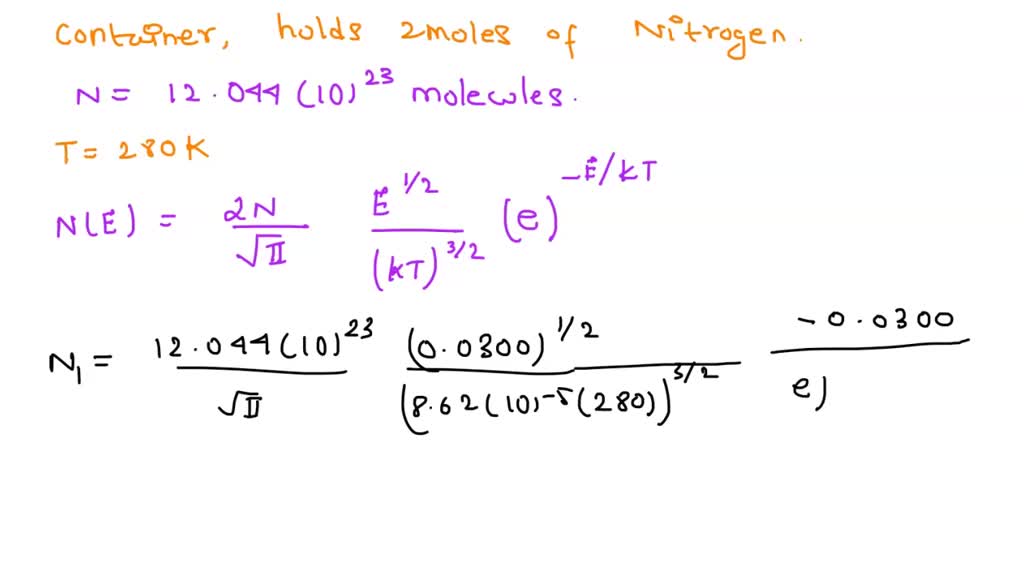 Container, holds 2moles of Nitrogen.
N = 12.044 (10)^23 molecules.
T = 280K
N(E) = 2N/√π E^1/2/(kT)^3/2 (e)^-E/kT
N₁ = 12.044(10)^23/√π (0.0300)^1/2/(8.62(10)^-5(280))^3/2 -0.0300/e)